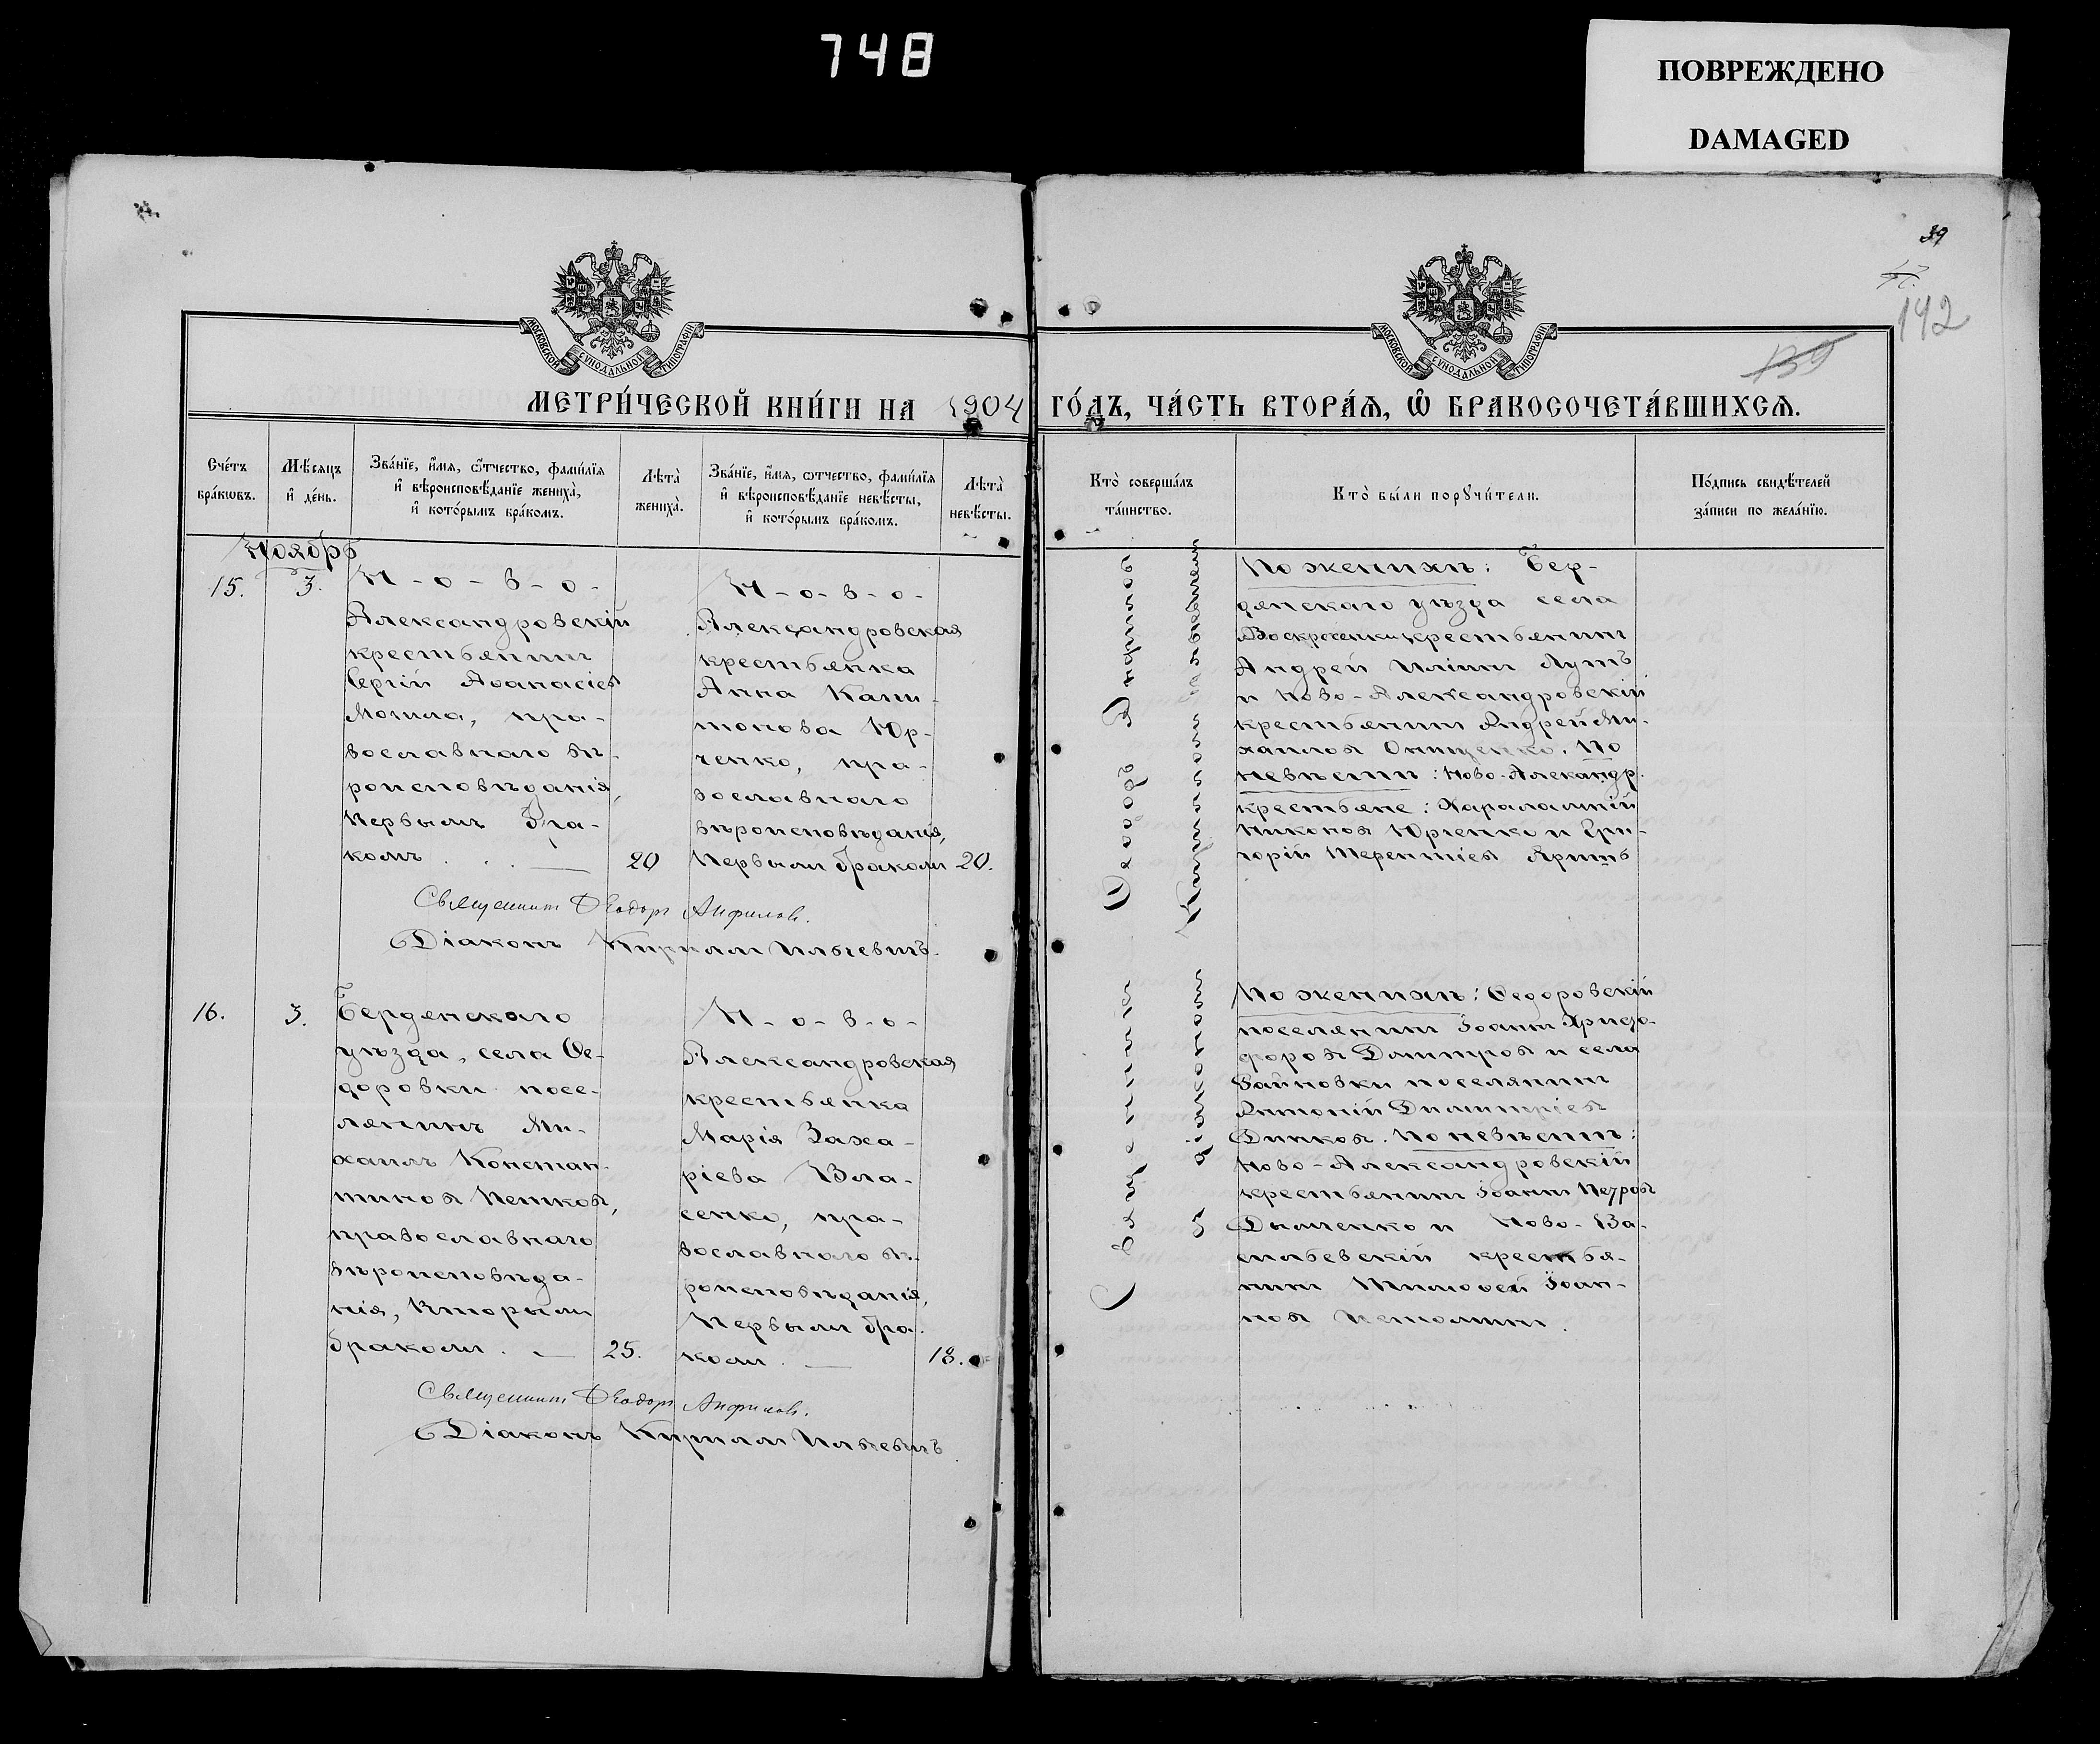 748
ПОВРЕЖДЕНО
DAMAGED
39
142
139
МОСКОВСКОЙ СУНОДАЛЬНОЙ ТИПОГРАФІИ
МОСКОВСКОЙ СУНОДАЛЬНОЙ ТИПОГРАФІИ
МЕТРИ́ЧЕСКОЙ КНИ́ГИ НА 1904 ГО́ДЪ, ЧА́СТЬ ВТОРА́Ѧ, Ѡ БРАКОСОЧЕТА́ВШИХСѦ.
Сче́тъ
бра́кωвъ.
Мѣ́сяцъ
и҆ де́нь.
Зва́нїе, и҆́мѧ, ѻ҆́тчество, фами́лїѧ
и҆ вѣроисповѣ́данїе жениха̀,
и҆ кото́рымъ бра́комъ.
Лѣта̀
жениха̀.
Зва́нїе, и҆́мѧ, ѻ҆́тчество, фами́лїѧ
и҆ вѣроисповѣ́данїе невѣ́сты,
и҆ кото́рымъ бра́комъ.
Лѣта̀
невѣ́сты.
Кто̀ соверша́лъ
та́инство.
Кто̀ бы́ли порꙋчи́тели.
По́дпись свидѣ́телей
за́писи по жела́нїю.
Ноябрь
15.
3.
Н-о-в-о-
Александровскій
крестьянинъ
Сергій Аѳанасіевъ
Могила, пра-
вославнаго вѣ-
роисповѣданія,
Первымъ бра-
комъ.
20
Н-о-в-о-
Александровская
крестьянка
Анна Капи-
тонова Юр-
ченко, пра-
вославнаго
вѣроисповѣданія,
Первымъ бракомъ
20.
Священникъ Ѳеодоръ Анфиловъ
съ діакономъ Кирилломъ Ильевичемъ
По женихѣ: Бер-
дянскаго уѣзда села
Воскресенки крестьянинъ
Андрей Иліинъ Лутъ
и Ново-Александровскій
крестьянинъ Андрей Ми-
хаиловъ Онищенко. По
невѣстѣ: Ново-Александр.
крестьяне: Харалампій
Никоновъ Юрченко и Гри-
горій Терентіевъ Яришъ
Священникъ Ѳеодоръ Анфиловъ.
Діаконъ Кириллъ Ильевичъ.
16.
3.
Бердянскаго
уѣзда, села Ѳе-
доровки посе-
лянинъ Ми-
хаилъ Констан-
тиновъ Петковъ,
православнаго
вѣроисповѣда-
нія, Вторымъ
бракомъ.
25.
Н-о-в-о-
Александровская
крестьянка
Марія Заха-
ріева Вла-
сенко, пра-
вославнаго вѣ-
роисповѣданія,
Первымъ бра-
комъ.
18.
По женихѣ: Ѳедоровскій
поселянинъ Іоаннъ Христо-
форовъ Дмитровъ и села
Райновки поселянинъ
Антоній Димитріевъ
Динковъ. По невѣстѣ:
Ново-Александровскій
крестьянинъ Іоаннъ Петровъ
Дымченко и Ново-Ва-
сильевскій крестья-
нинъ Тимоѳей Іоан-
новъ
Священникъ Ѳеодоръ Анфиловъ.
Діаконъ Кириллъ Ильевичъ